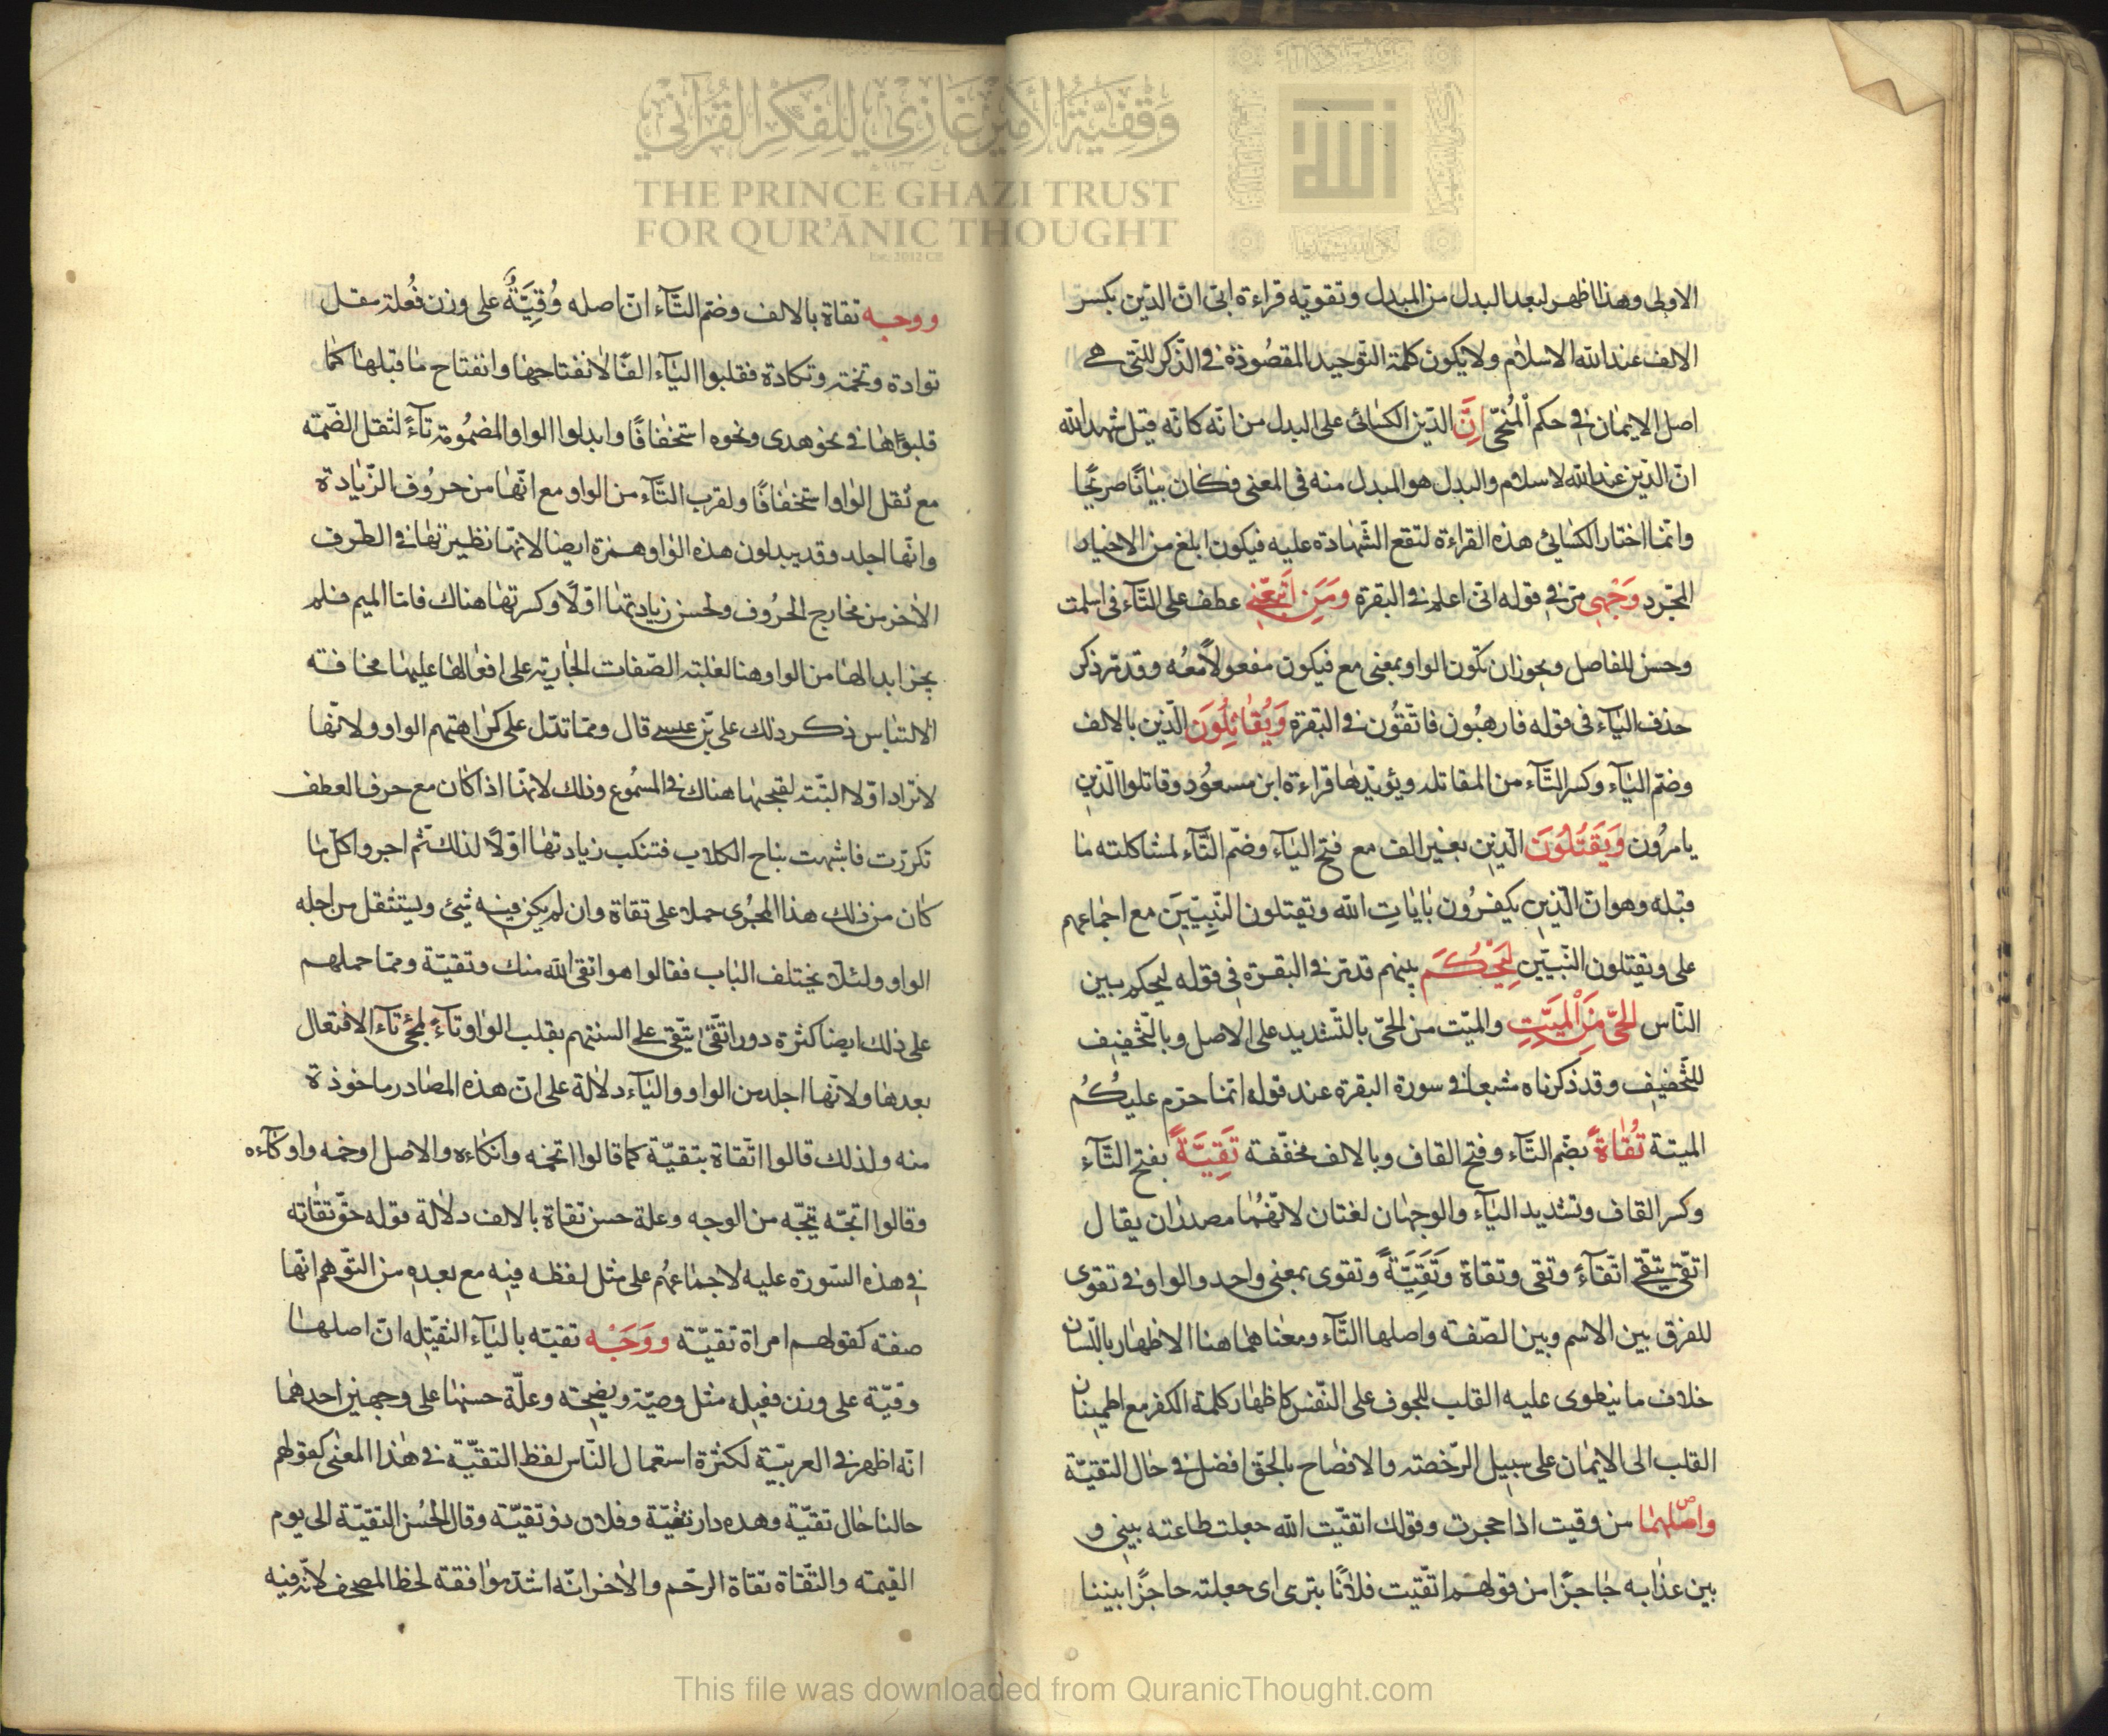 وقفية الأمير غازي للفكر القرآني
THE PRINCE GHAZI TRUST
FOR QUR'ĀNIC THOUGHT
Est. 2012 CE
الاولى وهذا اظهر لبعد البدل من المبدل وتقويه قراءة ابى ان الدّين بكسر
الالف عند الله الاسلام ولا يكون كلمة التوحيد المقصُوذة فى الذّكر للتى هى
اصل الايمان فى حكم المُنحىّ اِنَّ الدّين الكسائى على البدل من انّه كانّه قيل شهد الله
انّ الدّين عند الله لاسلام والبدل هو المبدل منه فى المعنى فكان بيانًا صريحًا
وانّما اختار الكسائى هذه القراءة لتقع الشّهادة عليه فيكون ابلغ من الاخبار
المجّرد وَجْهِى مرّ فى قوله انى اعلم فى البقرة ومَنِ اتَّبَعَنِ عطف على التّآء فى اسلمت
وحسن للفاصل ويجوز ان تكون الواو بمعنى مع فيكون مفعولاً معُه وقد مرّ ذكر
حذف اليآء فى قوله فارهبُون فاتّقُون فى البقرة وَيُقَاتِلُونَ الّذين بالالف
وضمّ اليآء وكسر التّآء من المقاتلة ويؤيّدها قراءة ابن مسعُود وقاتلوا الّذين
يامرُون وَيَقْتُلُونَ الّذين بغير الف مع فتح اليآء وضمّ التّآء لمشاكلته ما
قبله وهو انّ الّذين يكفرُون بايات الله وتقتلون النّبِيّيَن مع اجماعهم
على وتقتلون النّبيّين لِيَحْكُمَ بينهم قد مرّ فى البقرة فى قوله ليحكم بين
النّاس الحىّ مِنَ الْمَيِّتِ والميّت من الحىّ بالتّشديد على الاصل وبالتّخفيف
للتّخفيف وقد ذكرناه مشبعا فى سورة البقرة عند قوله انّما حرّم عليكُم
الميتة تُقَاةً بضّم التّآء وفتح القاف وبالالف مخفّفة تَقِيَّةً بفتح التّآء
وكسر القاف وتشديد اليآء والوجهان لغتان لانّهُما مصدران يقال
اتّقى يتّقى اتّقآءً وتقى وتقاة وَتَقِيَّةً وتقوى بمعنى واحد والواو فى تقوى
للفرق بين الاسم وبين الصّفة واصلها التّآء ومعناهما هنا الاظهار باللّسان
خلاف ما ينطوى عليه القلب للخوف على النّفس كاظهار كلمة الكفر مع اطمينان
القلب الى الايمان على سبيل الرّخصة والافصاح بالحقّ افضل فى حال التقيّة
واصلهما من وقيت اذا حجزت وقولك اتقيّت الله جعلت طاعته بينى و
بين عذابه حاجزًا من قولهم اتّقيت فلانًا بترى اى جعلته حاجزًا بيننا
ووجه تقاة بالالف وضمّ التّآء انّ اصله وُقِيَّةٌ على وزن فُعلة مقل
توادة وتخمة وتكادة فقلبوا اليآء الفًا لانفتاحها وانفتاح ما قبلها كما
قلبوها فى نحو هدى ونحوه استخفافًا وابدلوا الواو المضمُومة تآءً لثقل الضّمّة
مع ثقل الواو استخفافًا ولقرب التّآء من الواو مع انّها من حرُوف الزّيادة
وانّها اجلد وقد يبدلون هذه الواو همزة ايضا لانّها نظيرتها فى الطرف
الاخر من مخارج الحرُوف ولحسن زيادتها اوّلاً وكثرتها هناك فامّا الميم فلم
يجز ابدالها من الواو هنا لغلبة الصّفات الجارية على افعالها عليها مخافة
الالتباس ذكر ذلك علىّ بن عيسى قال وممّا تدّل على كراهتهم الواو ولانّها
لا تزاد اوّلا البتّة لقبحها هناك فى المسمُوع وذلك لانّها اذا كان مع حرف العطف
تكرّرت فاشبهت بناح الكلاب فتنكب زيادتها اوّلاً لذلك ثم اجروا كلّ ما
كان من ذلك هذا المجرى حملا على تقاة وان لم يكن فيه شئ ويستثقل من اجله
الواو ولئلّا يختلف الباب فقالوا هو اتقى الله منك وتقيّة وممّا حملهم
على ذلك ايضا كثرة دور اتّقى يتّقى على السنتهم بقلب الواو تآءً لمجئ تآء الافتعال
بعدها ولانّها اجلد من الواو واليآء دلالة على ان هذه المصادر ماخوذة
منه ولذلك قالوا اتّقاة بتقيّة كما قالوا اتخمه واتكاءه والاصل اوخمه واوكآءه
وقالوا اتجّه يتجّه من الوجه وعلة حسن تقاة بالالف دلالة قوله حقّ تقاته
فى هذه السّورة عليه لاجماعهُم على مثل لفظه فيه مع بعده من التّوهم انّها
صفة كقولهم امراة تقيّة ووَجْه تقيّه بالياء الثقيّله انّ اصلها
وقيّة على وزن فعيلة مثل وصيّة ويضيحته وعلّة حسنها على وجهين احدهما
انّه اظهر فى العربيّة لكثرة استعمال النّاس لفظ التقيّة فى هذا المعنى كقولهم
حالنا حال تقيّة وهذه دار تقيّة وفلان ذو تقيّة وقال الحُسن التقيّة الى يوم
القيمة والتّقاة تقاة الرحّم والاخر انّه اشدّ موافقة لخطّ المصحف لانّه فيه
This file was downloaded from QuranicThought.com